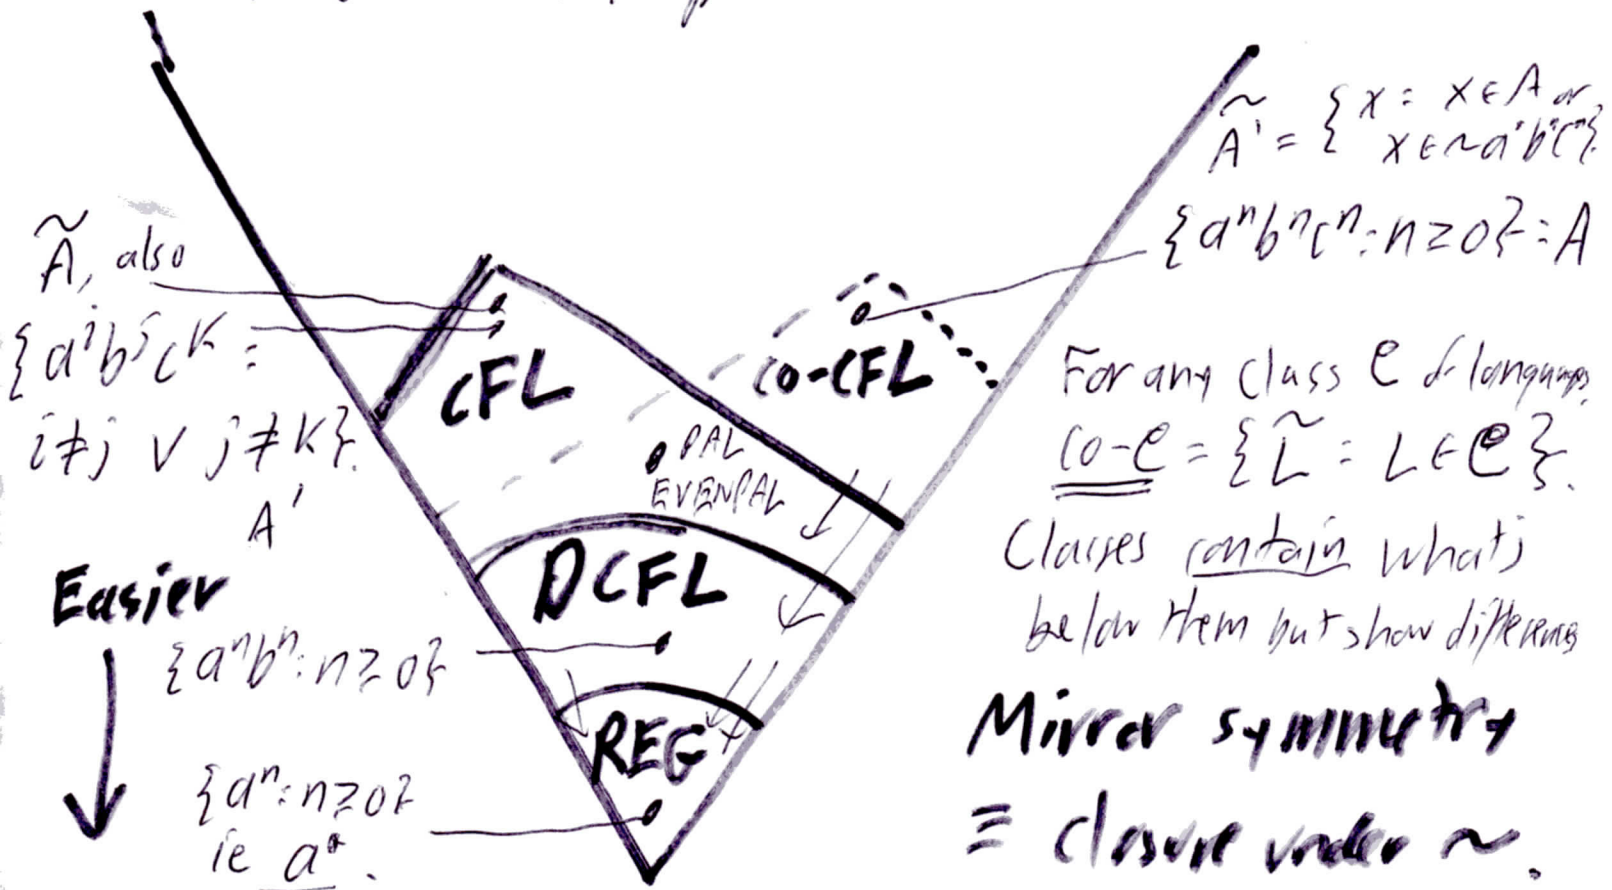 Ã, also
{aⁱbʲcᵏ :
i≠j ∨ j≠k}.
A'
Easier
{aⁿbⁿ: n≥0}
{aⁿ: n≥0}
ie a*.
CFL
co-CFL
PAL
EVENPAL
DCFL
REG
Ã' = {x : x ∈ A or
x ∈ ~a*b*c*}
{aⁿbⁿcⁿ: n≥0} : A
For any class C of languages,
co-C = {L̃ : L ∈ C}.
Classes contain what's
below them but show differences
Mirror symmetry
≡ closure under ~.